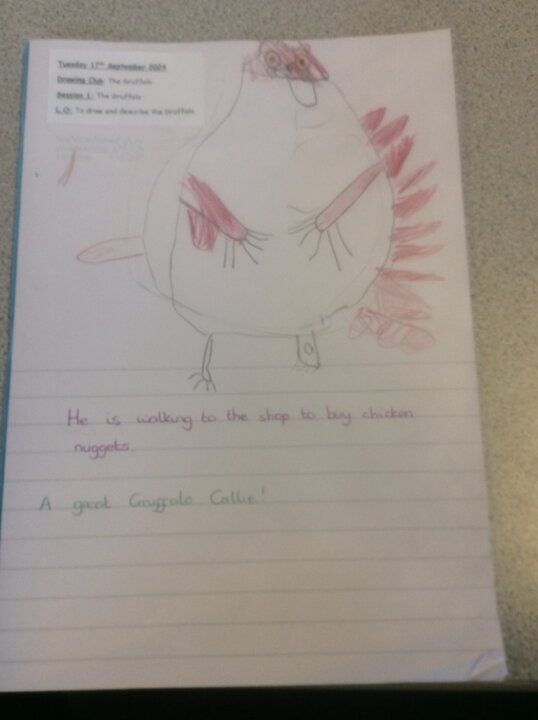 Tuesday 17th September 2024
Drawing Club: The Gruffalo
Session 1: The Gruffalo
L.O: To draw and describe the Gruffalo.
He is walking to the shop to buy chicken
nuggets.
A great Gruffalo Callie!